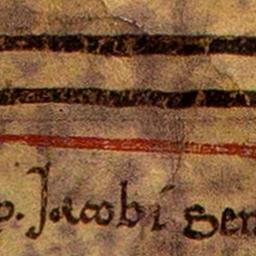 p. Jacobi gen